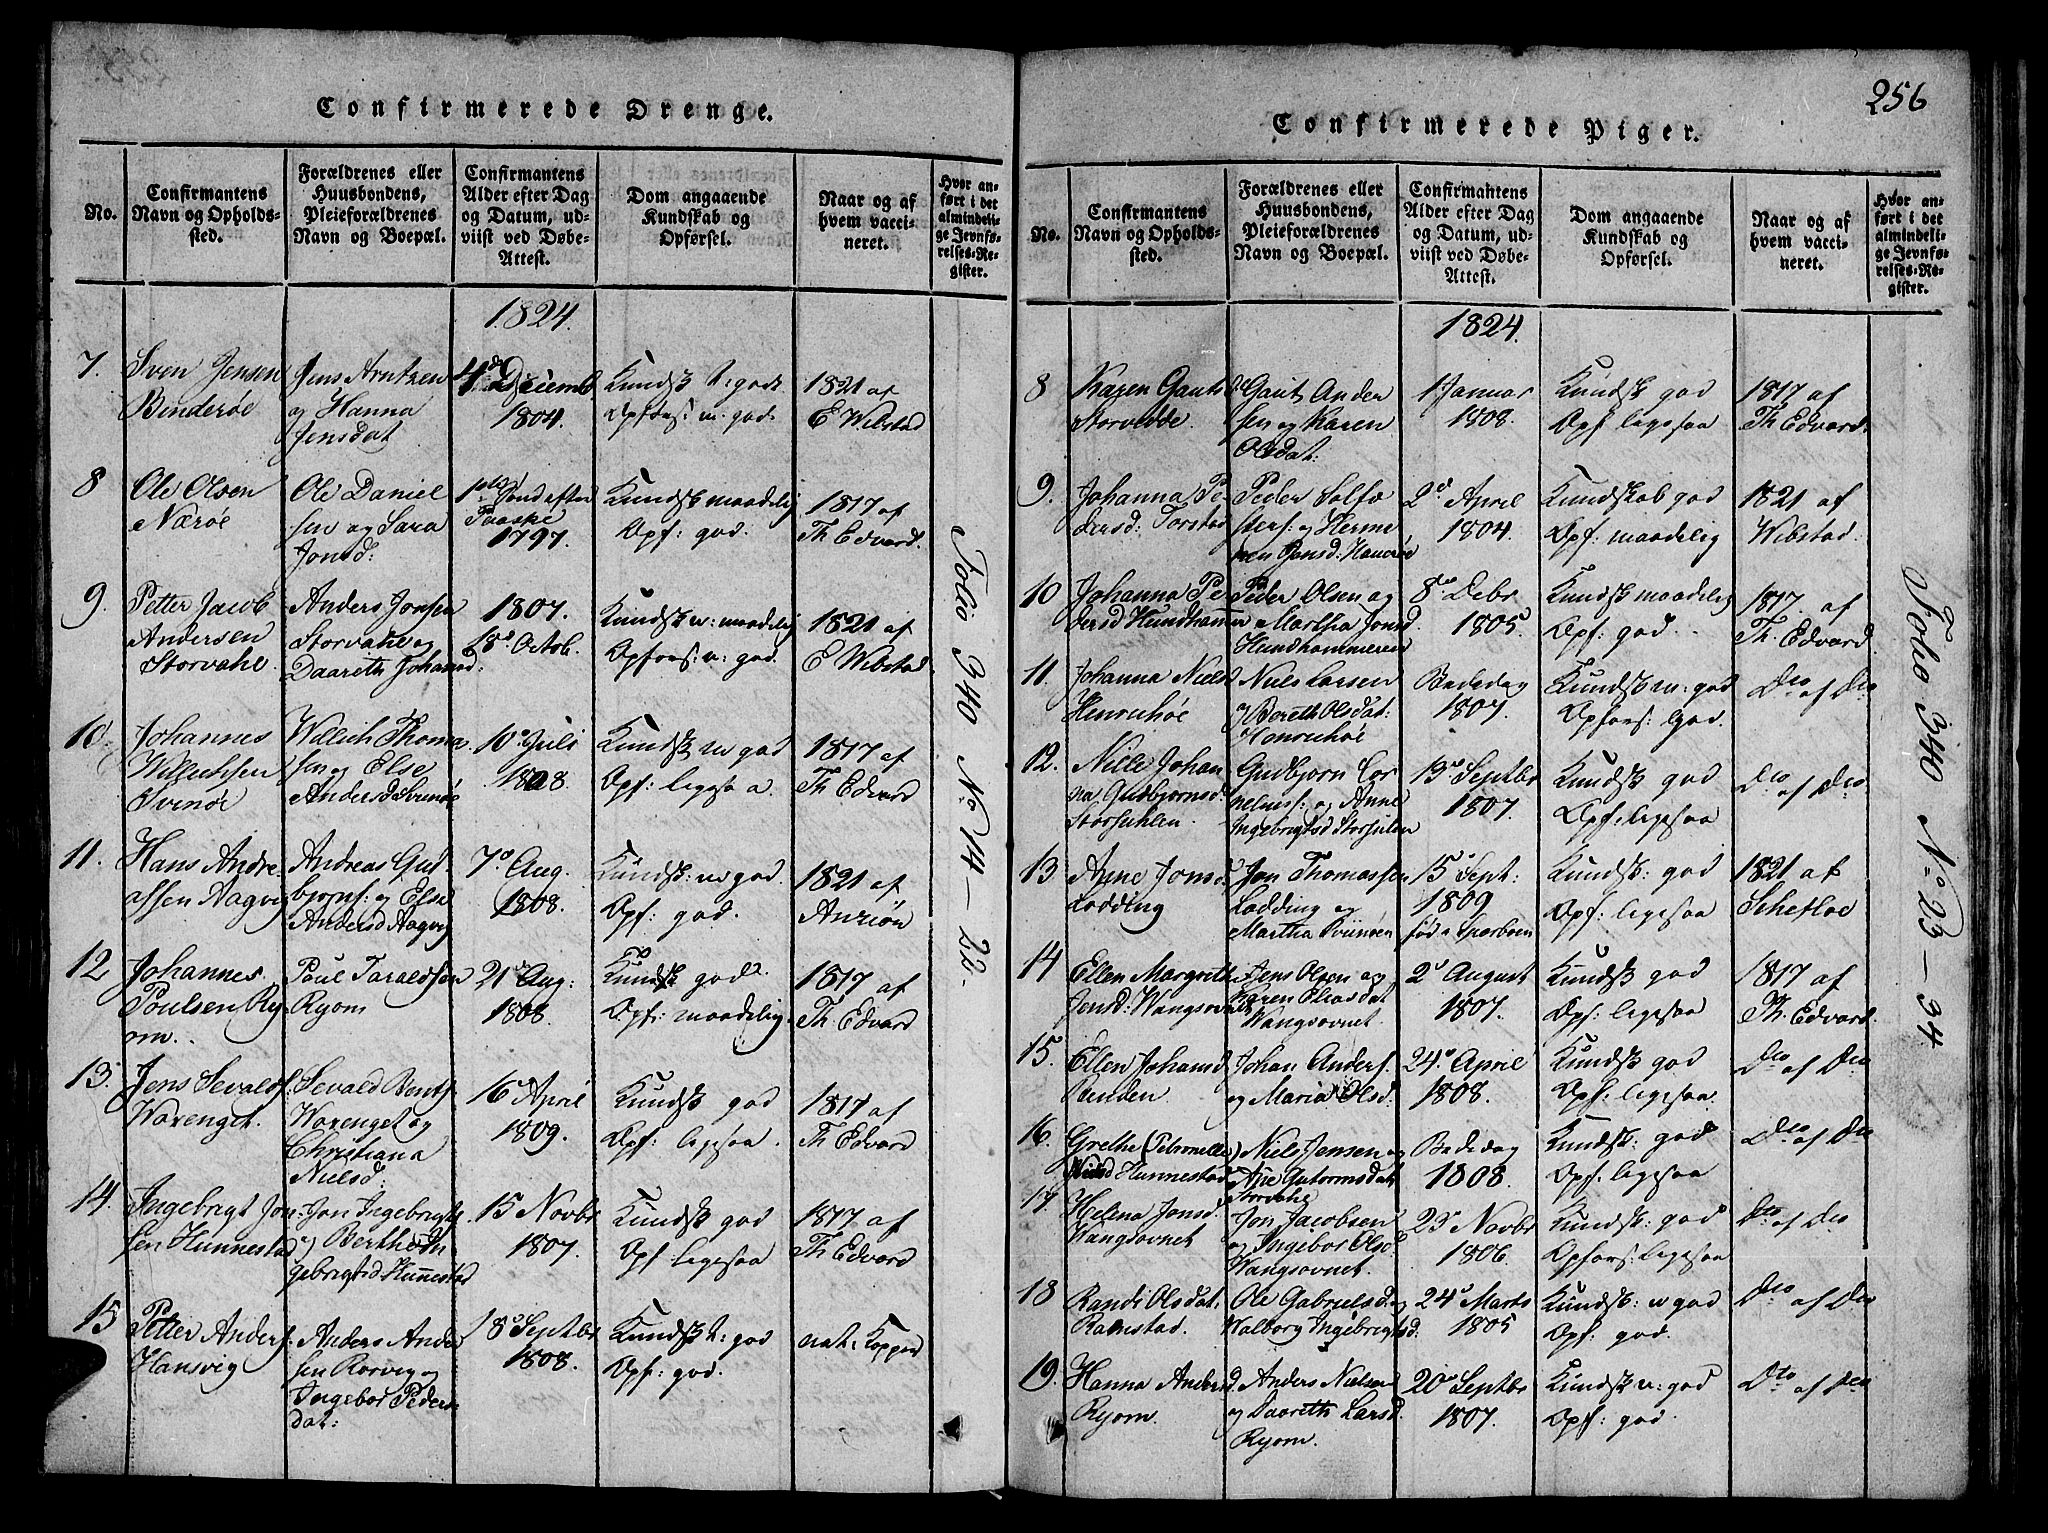 256
Confirmerede Drenge.
No.
Confirmantens
Navn og Opholds-
sted.
Forældrenes eller
Huusbondens,
Pleieforældrenes
Navn og Boepæl.
Confirmantens
Alder efter Dag
og Datum, ud-
viist ved Døbe-
Attest.
Dom angaaende
Kundskab og
Opførsel.
Naar og af
hvem vacci-
neret.
Hvor an-
ført i det
almindeli-
ge Jevnfø-
relses-Re-
gister.
1824.
7.
Sven Jensen
Binderøe
Jens Arntzen
og Hanna
Jensdat
4de Decemb.
1804.
Kundsk t: god
Opførs: m: god.
1821 af
E Wibstad
8
Ole Olsen
Nærøe
Ole Daniel
sen og Sara
Jonsd:
1ste Sønd efter
Paaske
1797.
Kundsk maadelig
Opf: god.
1817 af
Th Edvard.
9.
Petter Jacob
Andersen
Storvahe.
Anders Jonsen
Storvahe og
Daareth Johansd:
1807.
18de Octob.
Kundsk m: maadelig
Opførs: m: god.
1821 af
E Wibstad.
10.
Johannes
Willichsen
Svinøe
Willich Thoma
sen og Else
Andersd Svinøe
10de Juli
1808
Kundsk m god
Opf: ligesaa.
1817 af
Th Edvard
11.
Hans Andre
assen Aagvig
Andreas Gud
bjørns: og Else
Andersd Aagvig
7de Aug.
1808.
Kundsk: m god.
Opf: god.
1821 af
Anzión
12
Johannes
Poulsen Ry
om.
Poul Taraldsen
Ryom
21de Aug:
1808.
Kundsk god
Opf: maadelig.
1817 af
Th. Edvard
13.
Jens Sevalds:
Warenget.
Sevald Bents:
Warenget og
Christiana
Nielsd:
16 April
1809.
Kundsk god
Opf: ligesaa.
1817 af
Th Edvard
14.
Ingebrigt Jon
sen Hunnestad
Jon Ingebrigts:
og Bertha In
gebrigtsd Hunnestad
15 Novbr
1807.
Kundsk god
Opf ligesaa
1817 af
Th Edvard
15
Petter Anders:
Hansvig
Anders Ander
sen Rorvig og
Ingebor Peders
dat:
18de Septbr
1808.
Kundsk t: god
Opf: god.
nat: Kopper
Folio 340 No 14 - 22.
Confirmerede Piger.
No.
Confirmantens
Navn og Opholds-
sted.
Forældrenes eller
Huusbondens,
Pleieforældrenes
Navn og Boepæl.
Confirmantens
Alder efter Dag
og Datum, ud-
viist ved Døbe-
Attest.
Dom angaaende
Kundskab og
Opførsel.
Naar og af
hvem vacci-
neret.
Hvor an-
ført i det
almindeli-
ge Jevnfø-
relses-Re-
gister.
1824.
8
Karen Gauts
Storvedde.
Gaut Ander
sen og Karen
Olsdat:
1 Januar
1808.
Kundsk god
Opf ligesaa
1817 af
Th Edvard.
9.
Johanna Pe-
dersd: Torstad
Peder Solfæ
sters: og Herme
Jensd: Hanerøe
2de April
1804.
Kundskab god
Opf: maadelig
1821 af
Wibstad.
10
Johanna Pe-
dersd Hundhamm
Peder Olsen og
Martha Jonsd.
Hundhammeren
8de Debr
1805.
Kundsk maadelig
Opf: god.
1817. af
Th. Edvard
11.
Johanna Niels
Henrichøe
Niels Larsen
og Bereth Olsdat:
Henrichøe
Bededag
1807.
Kundsk m: god
Opførs: god.
Do af Do
12.
Nille Johan
na Gudbjornsd.
Storsuhlen.
Gudbjorn Cor
neliuss: og Anne
Ingebrigtsd Storsulen
13de Septbr
1807.
Kundsk god
Opf: ligesaa
Do af Do
13
Anne Jonsd
Lodding
Jon Thomassen
Lodding og
Martha
15 Sept:
1809
fød i Sparboen
Kundsk: god
Opf: ligesaa
1821 af
Schefloe
14
Ellen Margreth
Jensd: Wangsovnet
Jens Olsen og
Karen Eliasdat
Wangsovnet.
2de August
1807.
Kundsk god
Opf: ligesaa
1817 af
Th. Edvard.
15.
Ellen Johansd
Johan Anders:
og Maria Olsd:
24de April
1808.
Kundsk god
Opf: ligesaa.
Do af Do
16.
Grethe (Petronelle)
Nielsd Hunnestad
Niels Jensen og
Ane Gutormsdat
Storvahe
Bededag
1808.
Kundsk: god
Opf: ligesaa
Do af Do
17
Helena Jonsd.
Wangsovnet
Jon Jacobsen
og Ingebor Olsd
Wangsovnet.
23de Novbr
1806.
Kundsk: god
Opførs: ligesaa
Do af Do
18
Randi Olsdat:
Ramstad.
Ole Gabrielsd og
Walborg Ingebrigtsd.
24de Marts
1805
Kundsk: m god
Opf: god.
Do af Do
19.
Hanna Andersd.
Ryom.
Anders Nielsen
og Daareth Larsd.
Ryom.
20de Septbr
1807.
Kundsk m: god
Opf: god.
Do af Do
Folio 340 No 23 - 34